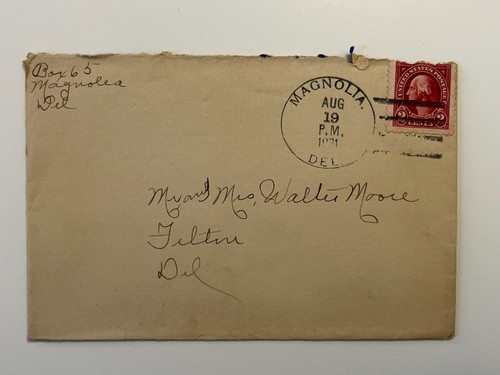 Box 65
Magnolia
Del
MAGNOLIA.
AUG
19
P.M.
1931
DEL.
UNITED STATES POSTAGE
2 CENTS 2
Mr and Mrs. Walter Moore
Felton
Del